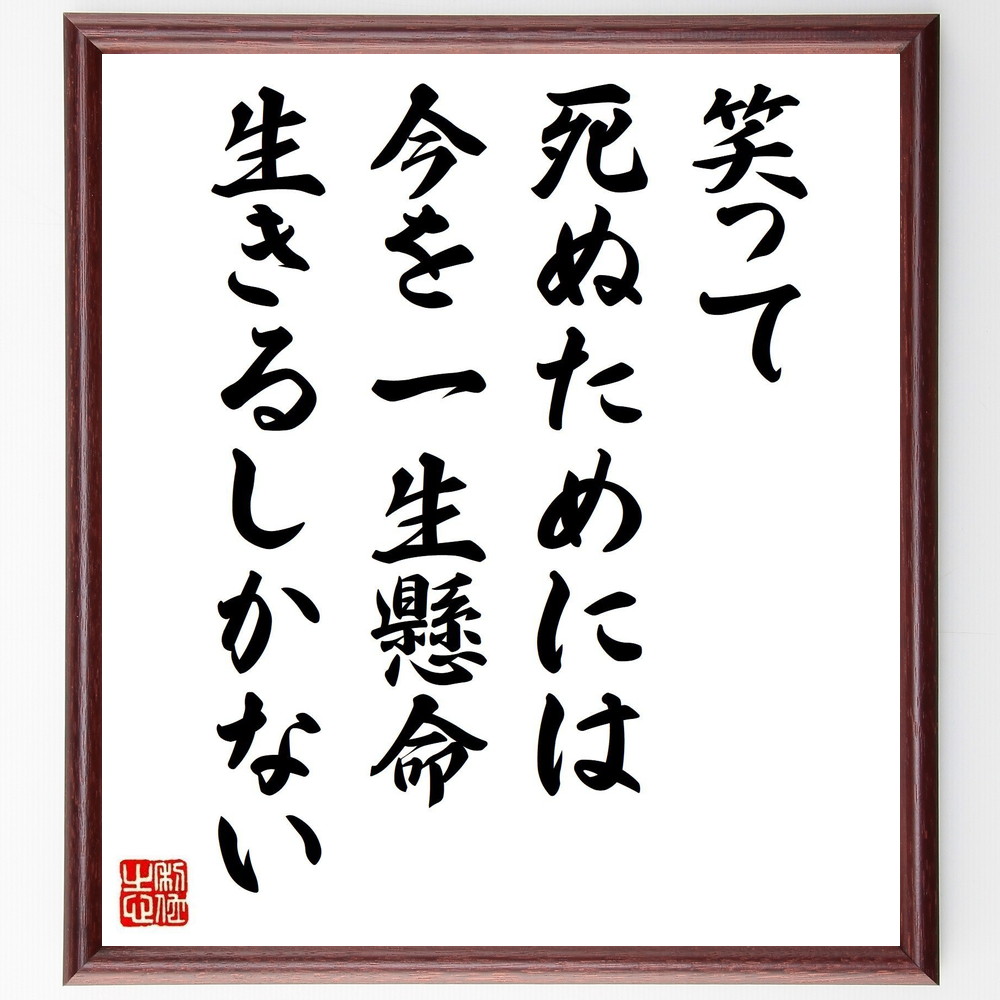 笑って
死ぬためには
今を一生懸命
生きるしかない